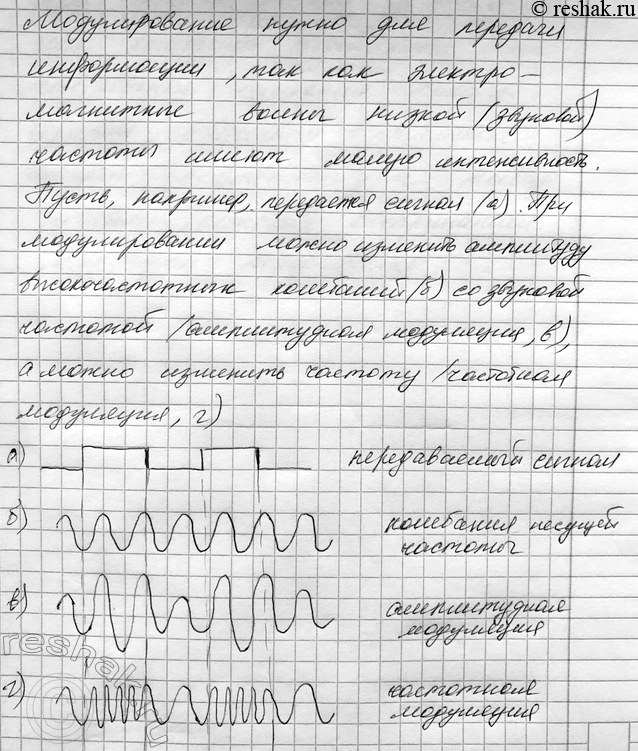 © reshak.ru
Модулирование нужно для передачи
информации, так как электро-
магнитные волны низкой (звуковой)
частоты имеют малую интенсивность.
Пусть, например, передается сигнал (а). При
модулировании можно изменить амплитуду
высокочастотных колебаний (б) со звуковой
частотой (амплитудная модуляция, в),
а можно изменить частоту (частотная
модуляция, г)
а) передаваемый сигнал
б) колебания несущей
частоты
в) амплитудная
модуляция
г) частотная
модуляция
reshak.ru